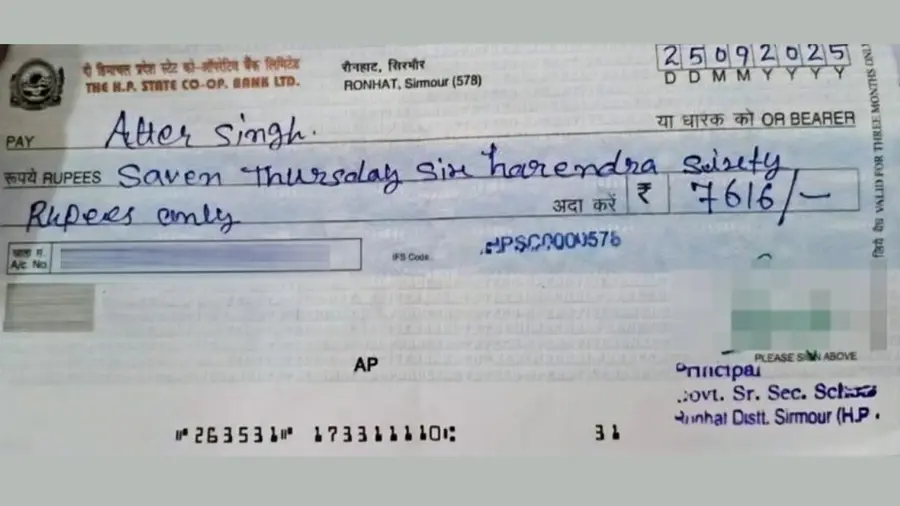 दी हिमाचल प्रदेश स्टेट को-ऑपरेटिव बैंक लिमिटेड
THE H.P. STATE CO-OP. BANK LTD.
रौनहाट, सिरमौर
RONHAT, Sirmour (578)
25092025
D D M M Y Y Y Y
PAY Atter Singh. या धारक को OR BEARER
रूपये RUPEES Saven Thursday Six harendra Sixty
Rupees only अदा करें ₹ 7616/-
खाता सं.
A/c. No.
IFS Code
HPSC0000578
VALID FOR THREE MONTHS ONLY
AP
PLEASE SIGN ABOVE
Principal
Govt. Sr. Sec. School
Ronhat Distt. Sirmour (H.P.
⑈263531⑈ 173311110⑆ 31